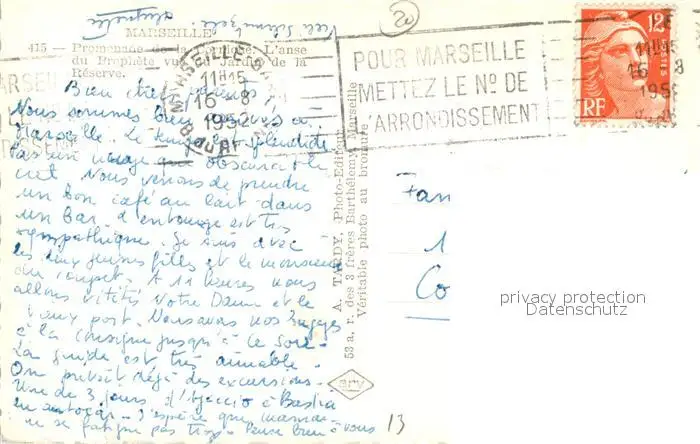 MARSEILLE
415 — Promenade de la Corniche. L'anse
du Prophète vue du Jardin de la
Réserve.
MARSEILLE
11H15
16 - 8
1952
POUR MARSEILLE
METTEZ LE Nº DE
L'ARRONDISSEMENT
12F
POSTES
RF
11H15
16 - 8
Bien chers
Nous sommes bien arrivés à
Marseille. Le temps est splendide
Pas un nuage qui obscurcit le
ciel. Nous venons de prendre
un bon café au lait dans
un bar. L'entourage est très
sympathique. Je suis avec
les deux jeunes filles et le monsieur
du coupet. A 11 heures nous
allons visiter Notre Dame et le
vieux port. Nous avons nos bagages
à la consigne jusqu'à ce soir.
La guide est très aimable.
On prévoit déjà des excursions.
Une de 3 jours d'Ajaccio à Bastia
en autocar. J'espère que maman
ne se fatigue pas trop. Pense bien à vous
A. TARDY, Photo-Editeur
52 a, r. des 3 frères Barthélemy, Marseille
Véritable photo au bromure
Fan
1
Co
privacy protection
Datenschutz
13